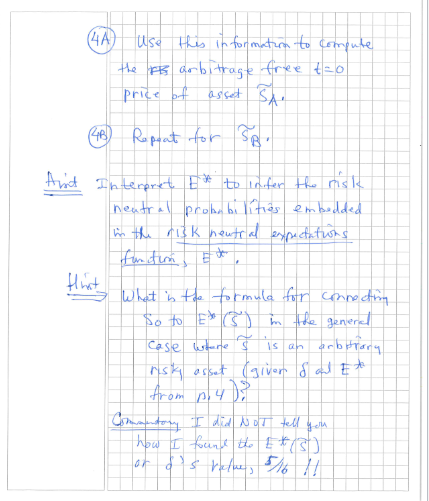 4A Use this information to compute
the arbitrage free t=0
price of asset S̃A.
4B Repeat for S̃B.
Hint Interpret E* to infer the risk
neutral probabilities embedded
in the risk neutral expectations
function, E*.
Hint, What is the formula for connecting
So to E*(S̃) in the general
case where S̃ is an arbitrary
risky asset (given δ and E*
from p.4)?
Commentary I did NOT tell you
how I found the E*(S̃)
or δ's values, 5/16 !!